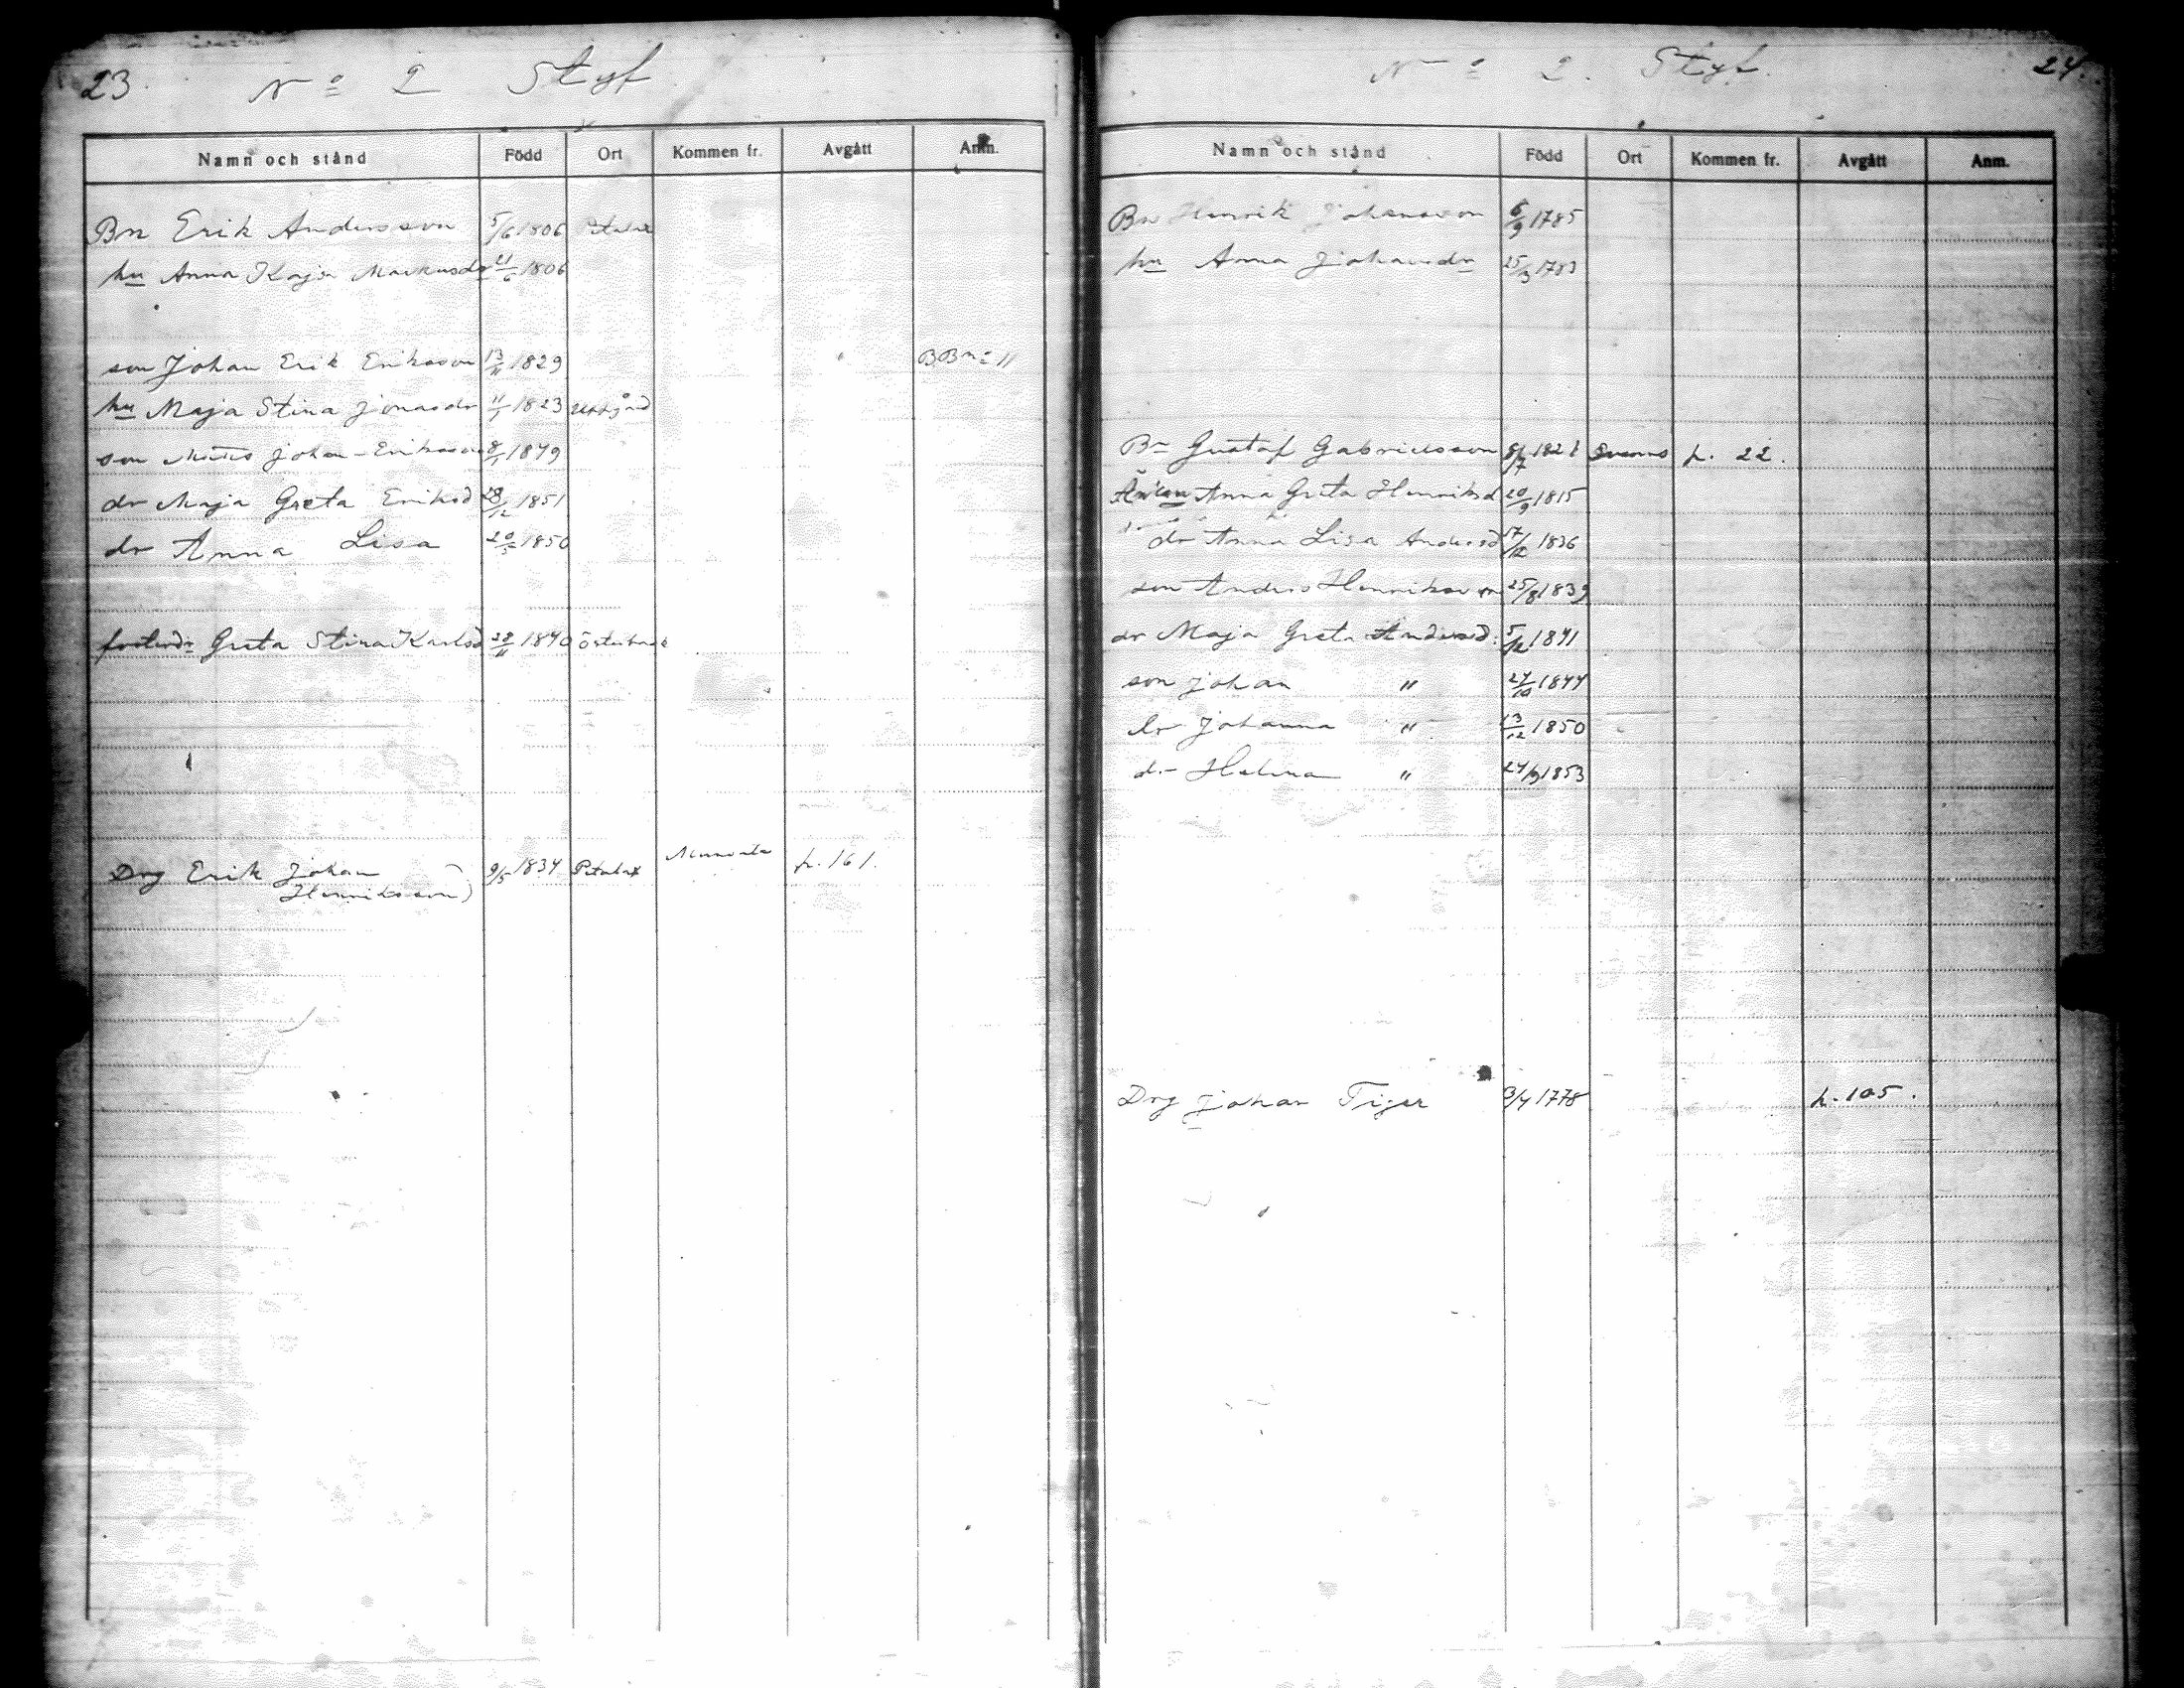 23. No 2 Styf
Namn och stånd Född Ort Kommen fr. Avgått Anm.
Bn Erik Andersson 5/6 1806 Petalax
hu Anna Kajsa Markusdr 21/6 1806
son Johan Erik Eriksson 13/11 1829 BBno 11
hu Maja Stina Jonasdr 11/1 1823
son Matts Johan Eriksson 8/1 1849
dr Maja Greta Eriksd 28/12 1851
dr Anna Lisa 20/5 1850
fosterdr Greta Stina Karlsd 28/11 1840
Drg Erik Johan 9/5 1834 Petalax p. 161.
Henriksson)
No 2. Styf. 24.
Namn och stånd Född Ort Kommen fr. Avgått Anm.
Bn Henrik Johansson 6/9 1785
hu Anna Johansdr 25/3 1783
Bn Gustaf Gabrielsson 8/7 p. 22.
Änkan Anna Greta Henriksd 20/9 1815
dr Anna Lisa Andersd 17/12 1836
son Anders Henriksson 25/8 1839
dr Maja Greta Andersd. 5/12 1841
son Johan " 24/10 1844
dr Johanna " 13/12 1850
dr Helena " 24/9 1853
Drg Johan Tiger 3/4 1778 p. 105.